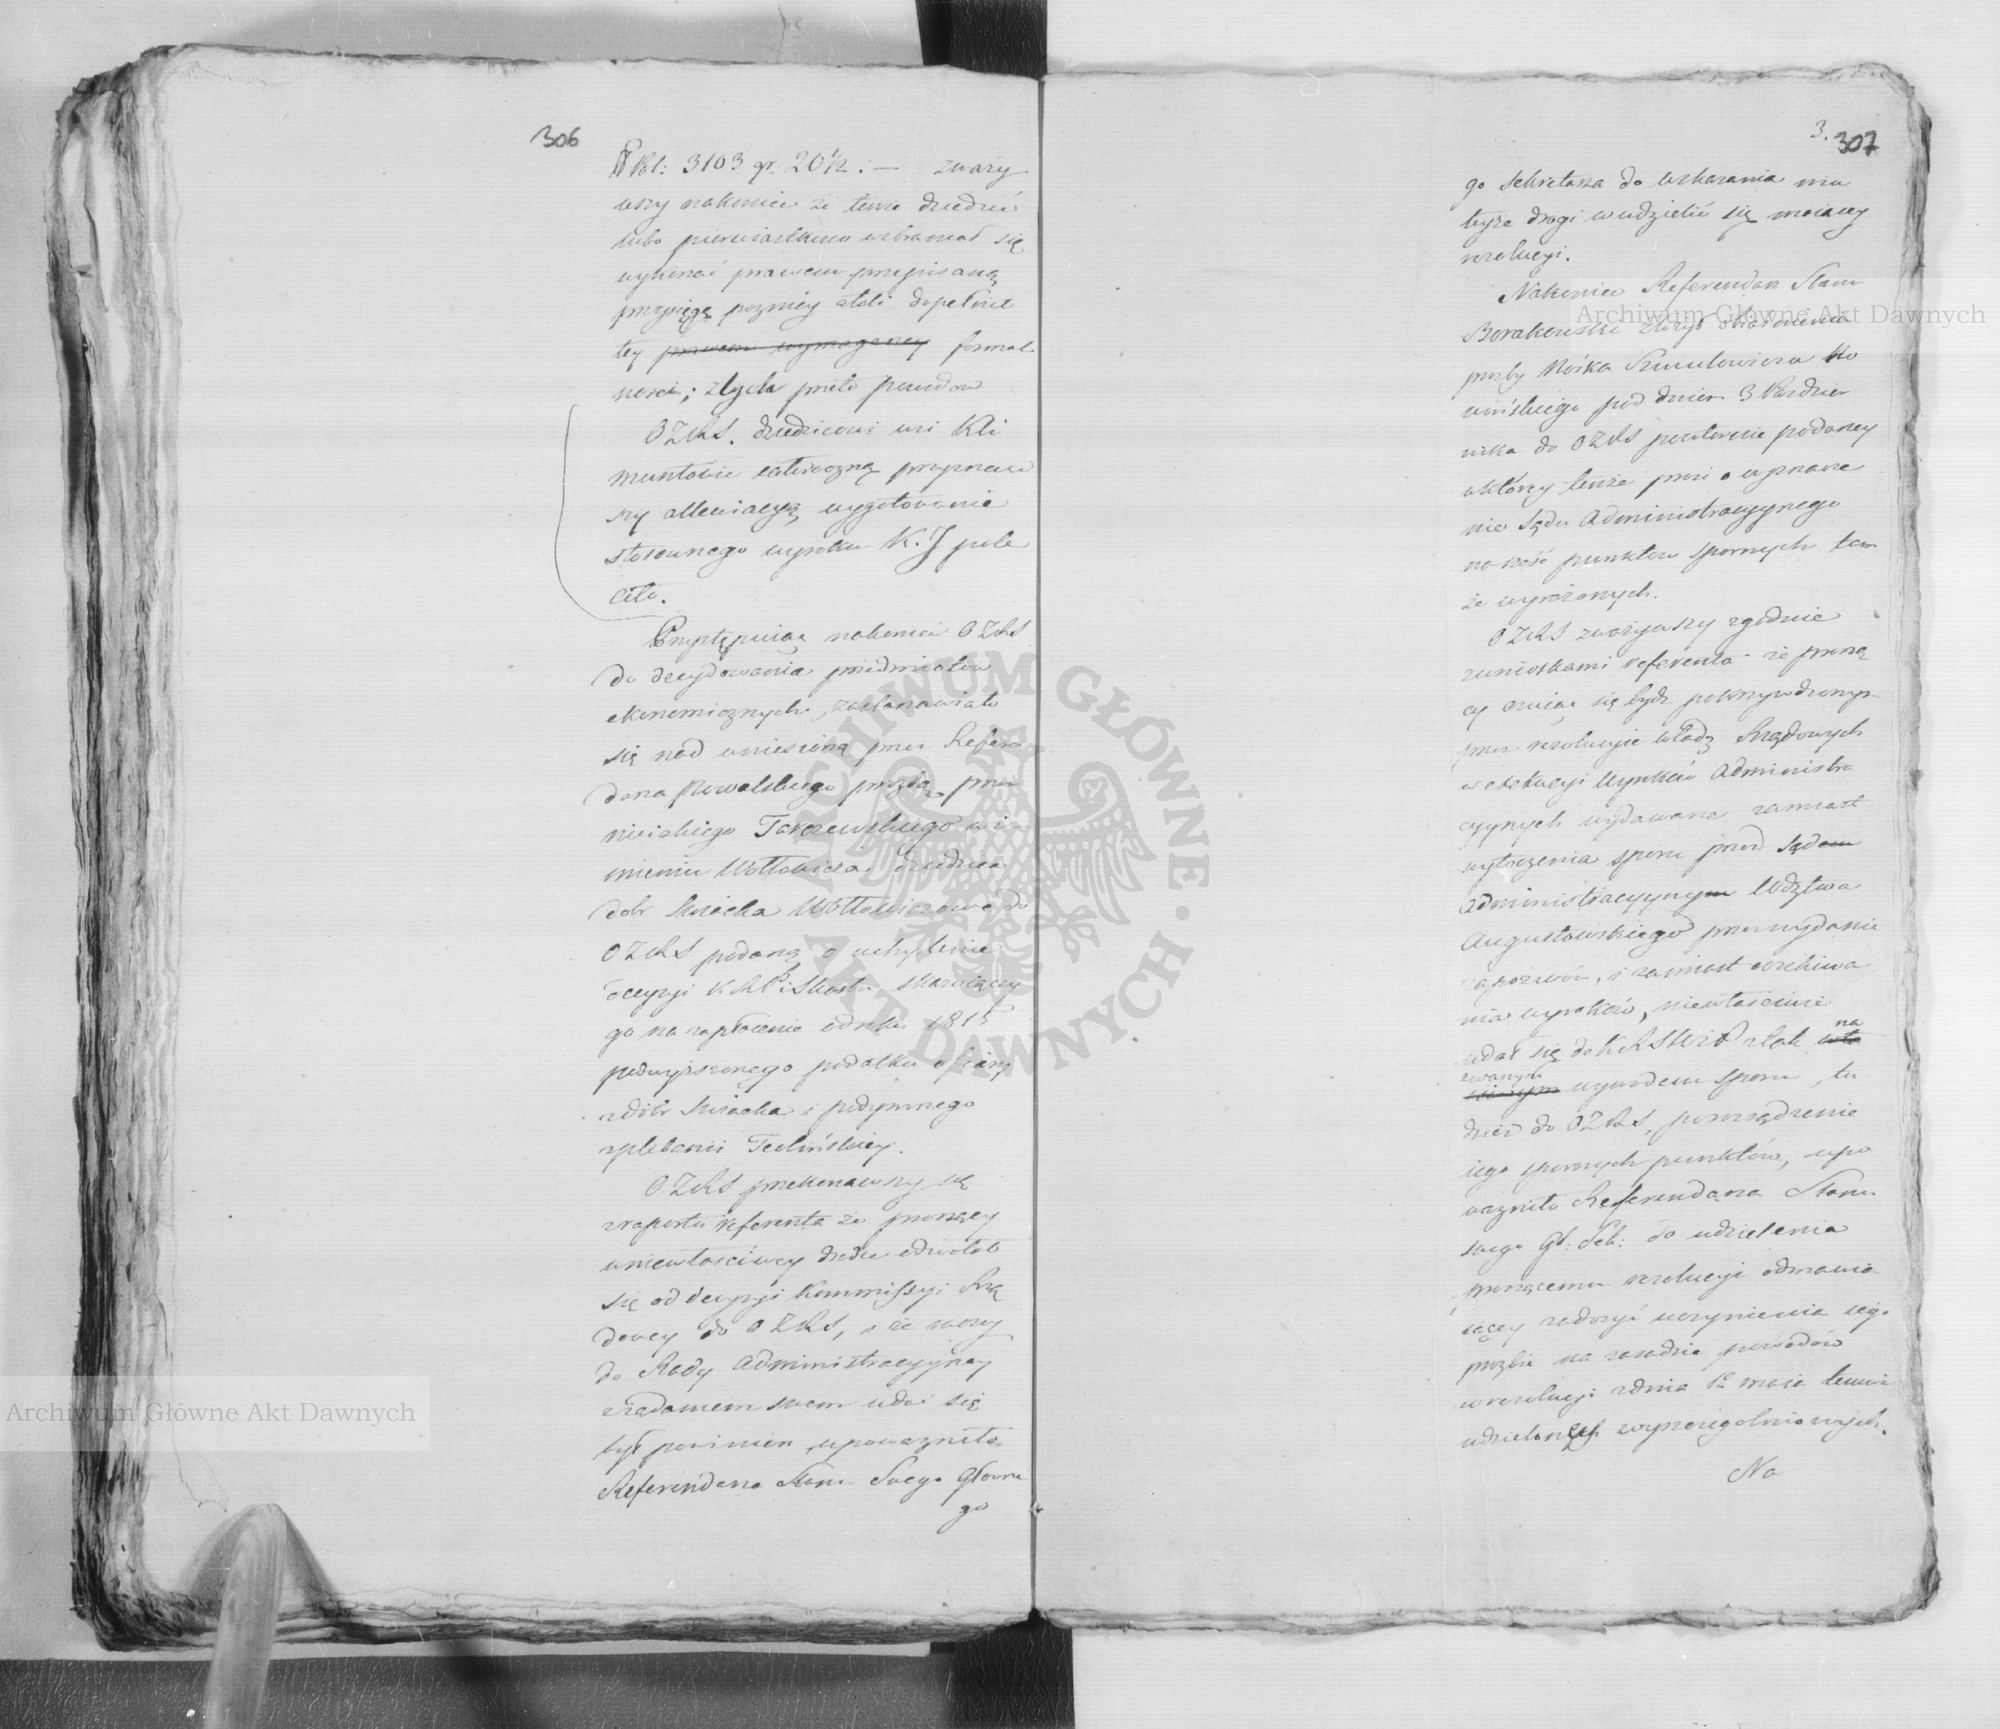 306
Rbl: 3103 gr. 20 1/2 : — zważy
wszy nakoniec że tenże dziedzic
lubo pierwiastkowo wzbraniał się
wykonać prawem przepisaną
przysięgę pozniey atoli dopełnił
tey prawem wymaganey formal
ności; z tych przeto powodów
OZRS. dziedzicowi wsi Kli
muntowic całoroczną przyznawa
szy allewiacyą wygotowanie
stosownego wyroku K. J pole
ciło.
Przystępuiąc nakoniec OZRS
do decydowania przedmiotów
ekonomicznych, zastanawiało
się nad wniesioną przez Refere
darza Kowalskiego prozbą przez
nieiakiego Tarczewskiego w i
mieniu Wołłowicza dziedzica
dobr Swiacka Wołłowiczowa do
OZRS podaną o uchylenie
decyzyi KRP i Skarbu skazuiącey
go na zapłacenie od roku 1815
podwyższonego podatku ofiary
z dobr Swiacka i podymnego
z plebanii Teolińskiey.
OZRS przekonawszy się
z raportu referenta że proszący
w niewłaściwey drodze odwołał
się od decyzyi Kommissyi Rzą
dowey do OZRS, i że raczey
do Rady Administracyyney
z żądaniem swem udać się
był powinien, upoważniło
Referendarza Stanu Swego Głowne
go
3. 307
go Sekretarza do wskazania mu
teyże drogi w udzielić się maiącey
rezolucyi.
Nakoniec Referendarz Stanu
Borakowski złożył obiaśnienia
prozby Moška Szmulowicza Ko
wińskiego pod dniem 3 Paździer
nika do OZRS powtornie podaney
w którey tenże prosi o wyznacze
nie Sądu Administracyynego
na rość punktow spornych tam
że wyrażonych.
OZRS zważywszy zgodnie
z wnioskami referenta że proszą
cy czuiąc się bydź pokrzywdzonym
przez rezolucyie Władz Rządowych
w exekucyi Wyroków Administra
cyynych wydawane zamiast
wytoczenia sporu przed Sądem
Administracyynym Wdztwa
Augustowskiego przez wydanie
zapozwów, i zamiast oczekiwa
nia wyroków, niewłaściwie
udał się do KRSWiP z tak na
zwanym wywodem sporu, tu
dzież do OZRS, o rozsądzenie
iego spornych punktów, upo
ważniło Referendarza Stanu
swego Gł: Sek: do udzielenia
proszącemu rezolucyi odmawia
iącey zadosyć uczynienia iego
prozbie na zasadzie powodów
w rezolucyi z dnia 12 maia temuż
udzieloney wyszczególnionych.
Na
Archiwum Główne Akt Dawnych
Archiwum Główne Akt Dawnych
ARCHIWUM GŁÓWNE · AKT DAWNYCH ·